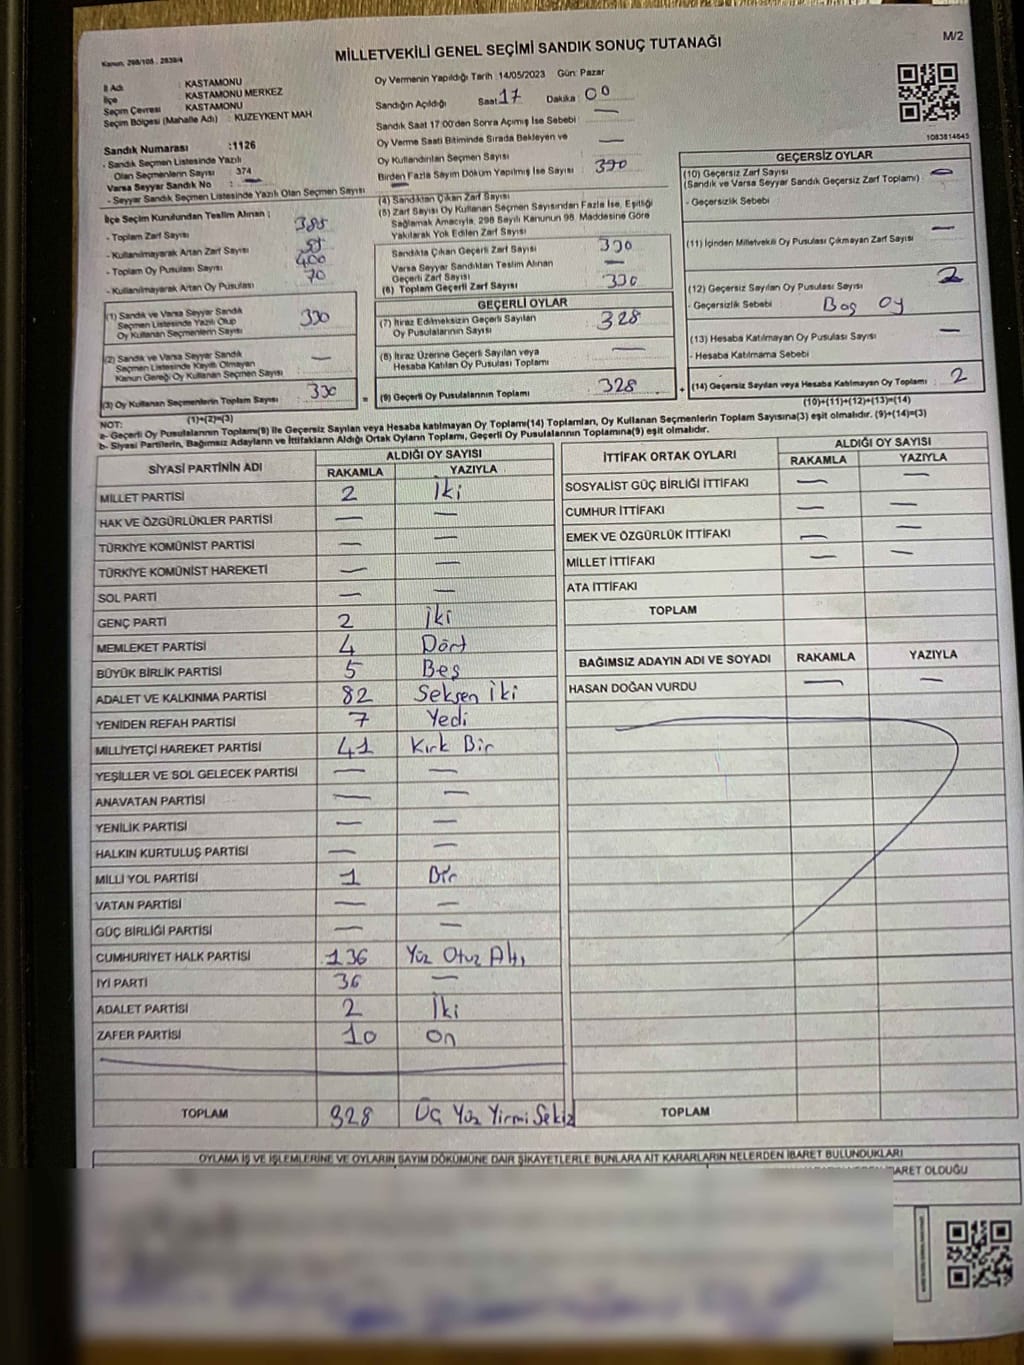 Kanun, 298/105 . 2839/4
MİLLETVEKİLİ GENEL SEÇİMİ SANDIK SONUÇ TUTANAĞI
M/2
İl Adı : KASTAMONU
İlçe : KASTAMONU MERKEZ
Seçim Çevresi : KASTAMONU
Seçim Bölgesi (Mahalle Adı) : KUZEYKENT MAH
Sandık Numarası :1126
- Sandık Seçmen Listesinde Yazılı
Olan Seçmenlerin Sayısı : 374
Varsa Seyyar Sandık No : —
- Seyyar Sandık Seçmen Listesinde Yazılı Olan Seçmen Sayısı —
Oy Vermenin Yapıldığı Tarih :14/05/2023 Gün: Pazar
Sandığın Açıldığı Saat 17 Dakika : 00
Sandık Saat 17:00'den Sonra Açımış İse Sebebi : —
Oy Verme Saati Bitiminde Sırada Bekleyen ve
Oy Kullandırılan Seçmen Sayısı —
Birden Fazla Sayım Döküm Yapılmış İse Sayısı :
1083814645
İlçe Seçim Kurulundan Teslim Alınan :
- Toplam Zarf Sayısı 385
- Kullanılmayarak Artan Zarf Sayısı 55
- Toplam Oy Pusulası Sayısı 400
- Kullanılmayarak Artan Oy Pusulası 70
(1) Sandık ve Varsa Seyyar Sandık
Seçmen Listesinde Yazılı Olup
Oy Kullanan Seçmenlerin Sayısı 330
(2) Sandık ve Varsa Seyyar Sandık
Seçmen Listesinde Kayıtlı Olmayan
Kanun Gereği Oy Kullanan Seçmen Sayısı : —
(3) Oy Kullanan Seçmenlerin Toplam Sayısı : 330
(1)+(2)=(3)
(4) Sandıktan Çıkan Zarf Sayısı : 330
(5) Zarf Sayısı Oy Kullanan Seçmen Sayısından Fazla İse, Eşitliği
Sağlamak Amacıyla, 298 Sayılı Kanunun 98. Maddesine Göre
Yakılarak Yok Edilen Zarf Sayısı
Sandıkta Çıkan Geçerli Zarf Sayısı 330
Varsa Seyyar Sandıktan Teslim Alınan
Geçerli Zarf Sayısı —
(6) Toplam Geçerli Zarf Sayısı : 330
GEÇERLİ OYLAR
(7) İtiraz Edilmeksizin Geçerli Sayılan
Oy Pusulalarının Sayısı : 328
(8) İtiraz Üzerine Geçerli Sayılan veya
Hesaba Katılan Oy Pusulası Toplamı : —
(9) Geçerli Oy Pusulalarının Toplamı : 328
GEÇERSİZ OYLAR
(10) Geçersiz Zarf Sayısı
(Sandık ve Varsa Seyyar Sandık Geçersiz Zarf Toplamı) : —
- Geçersizlik Sebebi
(11) İçinden Milletvekili Oy Pusulası Çıkmayan Zarf Sayısı —
(12) Geçersiz Sayılan Oy Pusulası Sayısı : 2
- Geçersizlik Sebebi Boş Oy
(13) Hesaba Katılmayan Oy Pusulası Sayısı : —
- Hesaba Katılmama Sebebi
(14) Geçersiz Sayılan veya Hesaba Katılmayan Oy Toplamı : 2
(10)+(11)+(12)+(13)=(14)
NOT:
a- Geçerli Oy Pusulalarının Toplamı(9) ile Geçersiz Sayılan veya Hesaba katılmayan Oy Toplamı(14) Toplamları, Oy Kullanan Seçmenlerin Toplam Sayısına(3) eşit olmalıdır. (9)+(14)=(3)
b- Siyasi Partilerin, Bağımsız Adayların ve İttifakların Aldığı Ortak Oyların Toplamı, Geçerli Oy Pusulalarının Toplamına(9) eşit olmalıdır.
SİYASİ PARTİNİN ADI ALDIĞI OY SAYISI
RAKAMLA YAZIYLA
MİLLET PARTİSİ 2 İki
HAK VE ÖZGÜRLÜKLER PARTİSİ — —
TÜRKİYE KOMÜNİST PARTİSİ — —
TÜRKİYE KOMÜNİST HAREKETİ — —
SOL PARTİ — —
GENÇ PARTİ 2 İki
MEMLEKET PARTİSİ 4 Dört
BÜYÜK BİRLİK PARTİSİ 5 Beş
ADALET VE KALKINMA PARTİSİ 82 Seksen İki
YENİDEN REFAH PARTİSİ 7 Yedi
MİLLİYETÇİ HAREKET PARTİSİ 41 Kırk Bir
YEŞİLLER VE SOL GELECEK PARTİSİ — —
ANAVATAN PARTİSİ — —
YENİLİK PARTİSİ — —
HALKIN KURTULUŞ PARTİSİ — —
MİLLİ YOL PARTİSİ 1 Bir
VATAN PARTİSİ — —
GÜÇ BİRLİĞİ PARTİSİ — —
CUMHURİYET HALK PARTİSİ 136 Yüz Otuz Altı
İYİ PARTİ 36 —
ADALET PARTİSİ 2 İki
ZAFER PARTİSİ 10 On
TOPLAM 328 Üç Yüz Yirmi Sekiz
İTTİFAK ORTAK OYLARI ALDIĞI OY SAYISI
RAKAMLA YAZIYLA
SOSYALİST GÜÇ BİRLİĞİ İTTİFAKI — —
CUMHUR İTTİFAKI — —
EMEK VE ÖZGÜRLÜK İTTİFAKI — —
MİLLET İTTİFAKI — —
ATA İTTİFAKI
TOPLAM
BAĞIMSIZ ADAYIN ADI VE SOYADI RAKAMLA YAZIYLA
HASAN DOĞAN VURDU — —
TOPLAM
OYLAMA İŞ VE İŞLEMLERİNE VE OYLARIN SAYIM DÖKÜMÜNE DAİR ŞİKAYETLERLE BUNLARA AİT KARARLARIN NELERDEN İBARET BULUNDUKLARI
BARET OLDUĞU